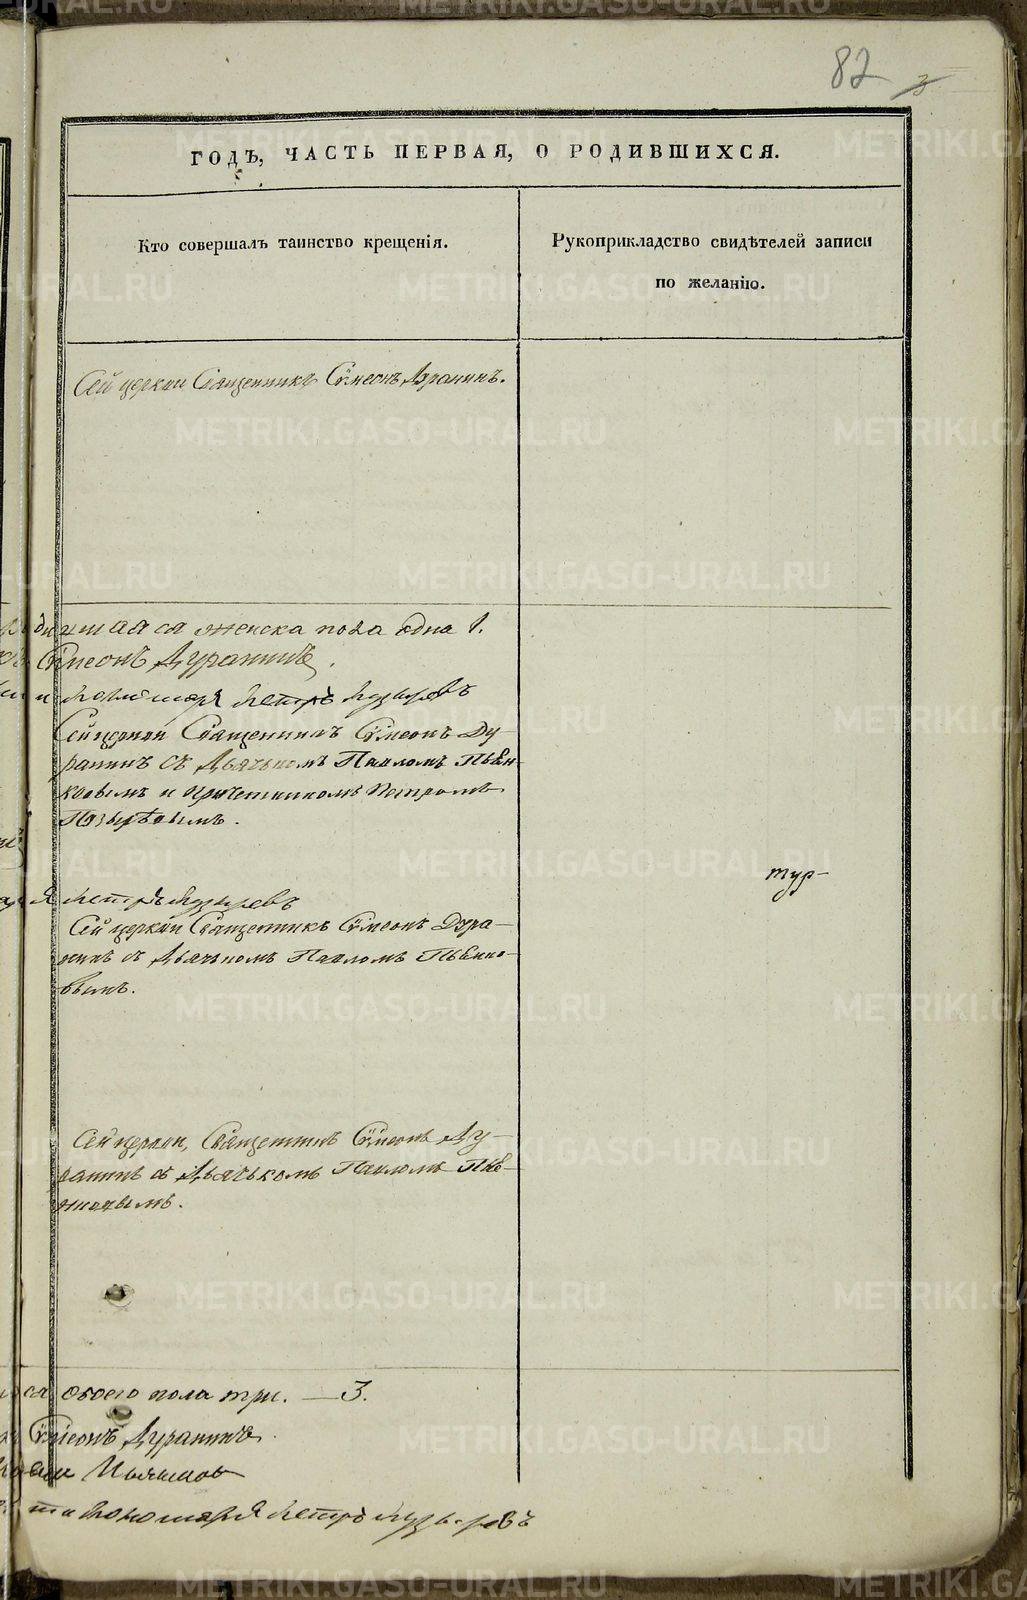 82 3
ГОДЪ, ЧАСТЬ ПЕРВАЯ, О РОДИВШИХСЯ.
Кто совершалъ таинство крещенія.
Рукоприкладство свидѣтелей записи
по желанію.
Сей церкви Священникъ Сѵмеонъ Дуранинъ.
женска пола одна 1.
Сѵмеонъ Дуранинъ.
Пономаря Петръ Пузыревъ
Сей церкви Священникъ Сѵмеонъ Ду-
ранинъ съ Дьячкомъ Павломъ Пьян-
ковымъ и причетникомъ Петромъ
Пузыревымъ.
тур-
Петръ Пузыревъ
Сей церкви Священникъ Сѵмеонъ Дура-
нинъ съ Дьячкомъ Павломъ Пьянко-
вымъ.
Сей церкви, Священникъ Сѵмеонъ Ду-
ранинъ съ Дьячькомъ Павломъ Пья-
нковымъ.
обоего пола три. — 3.
Сѵмеонъ Дуранинъ
Пьянков
Пономаря Петръ Пузыревъ
METRIKI.GASO-URAL.RU